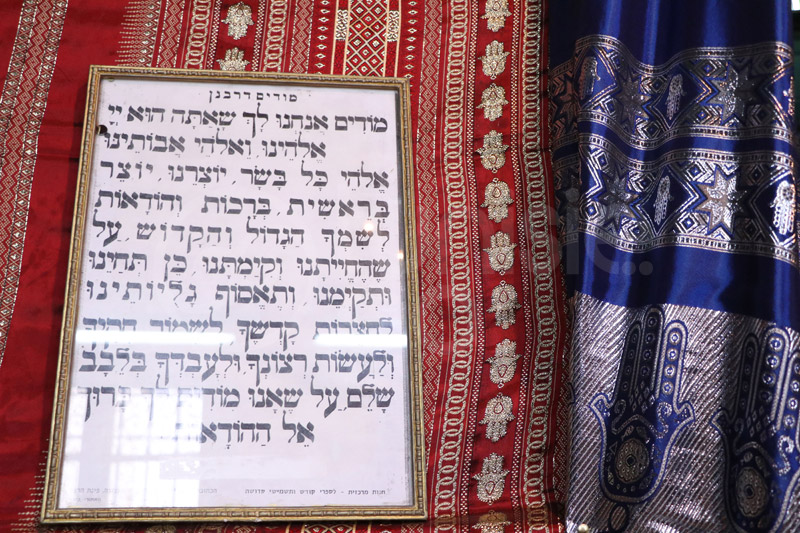 מודים דרבנן
מודים אנחנו לך שאתה הוא יי
אלהינו ואלהי אבותינו
אלהי כל בשר, יוצרנו, יוצר
בראשית, ברכות והודאות
לשמך הגדול והקדוש, על
שהחייתנו וקימתנו, כן תחינו
ותקימנו, ותאסוף גליותינו
לחצרות קדשך לשמור חקיך
ולעשות רצונך ולעבדך בלבב
שלם, על שאנו מודים לך ברוך
אל ההודאות
חנות מרכזית - לספרי קודש ותשמישי קדושה